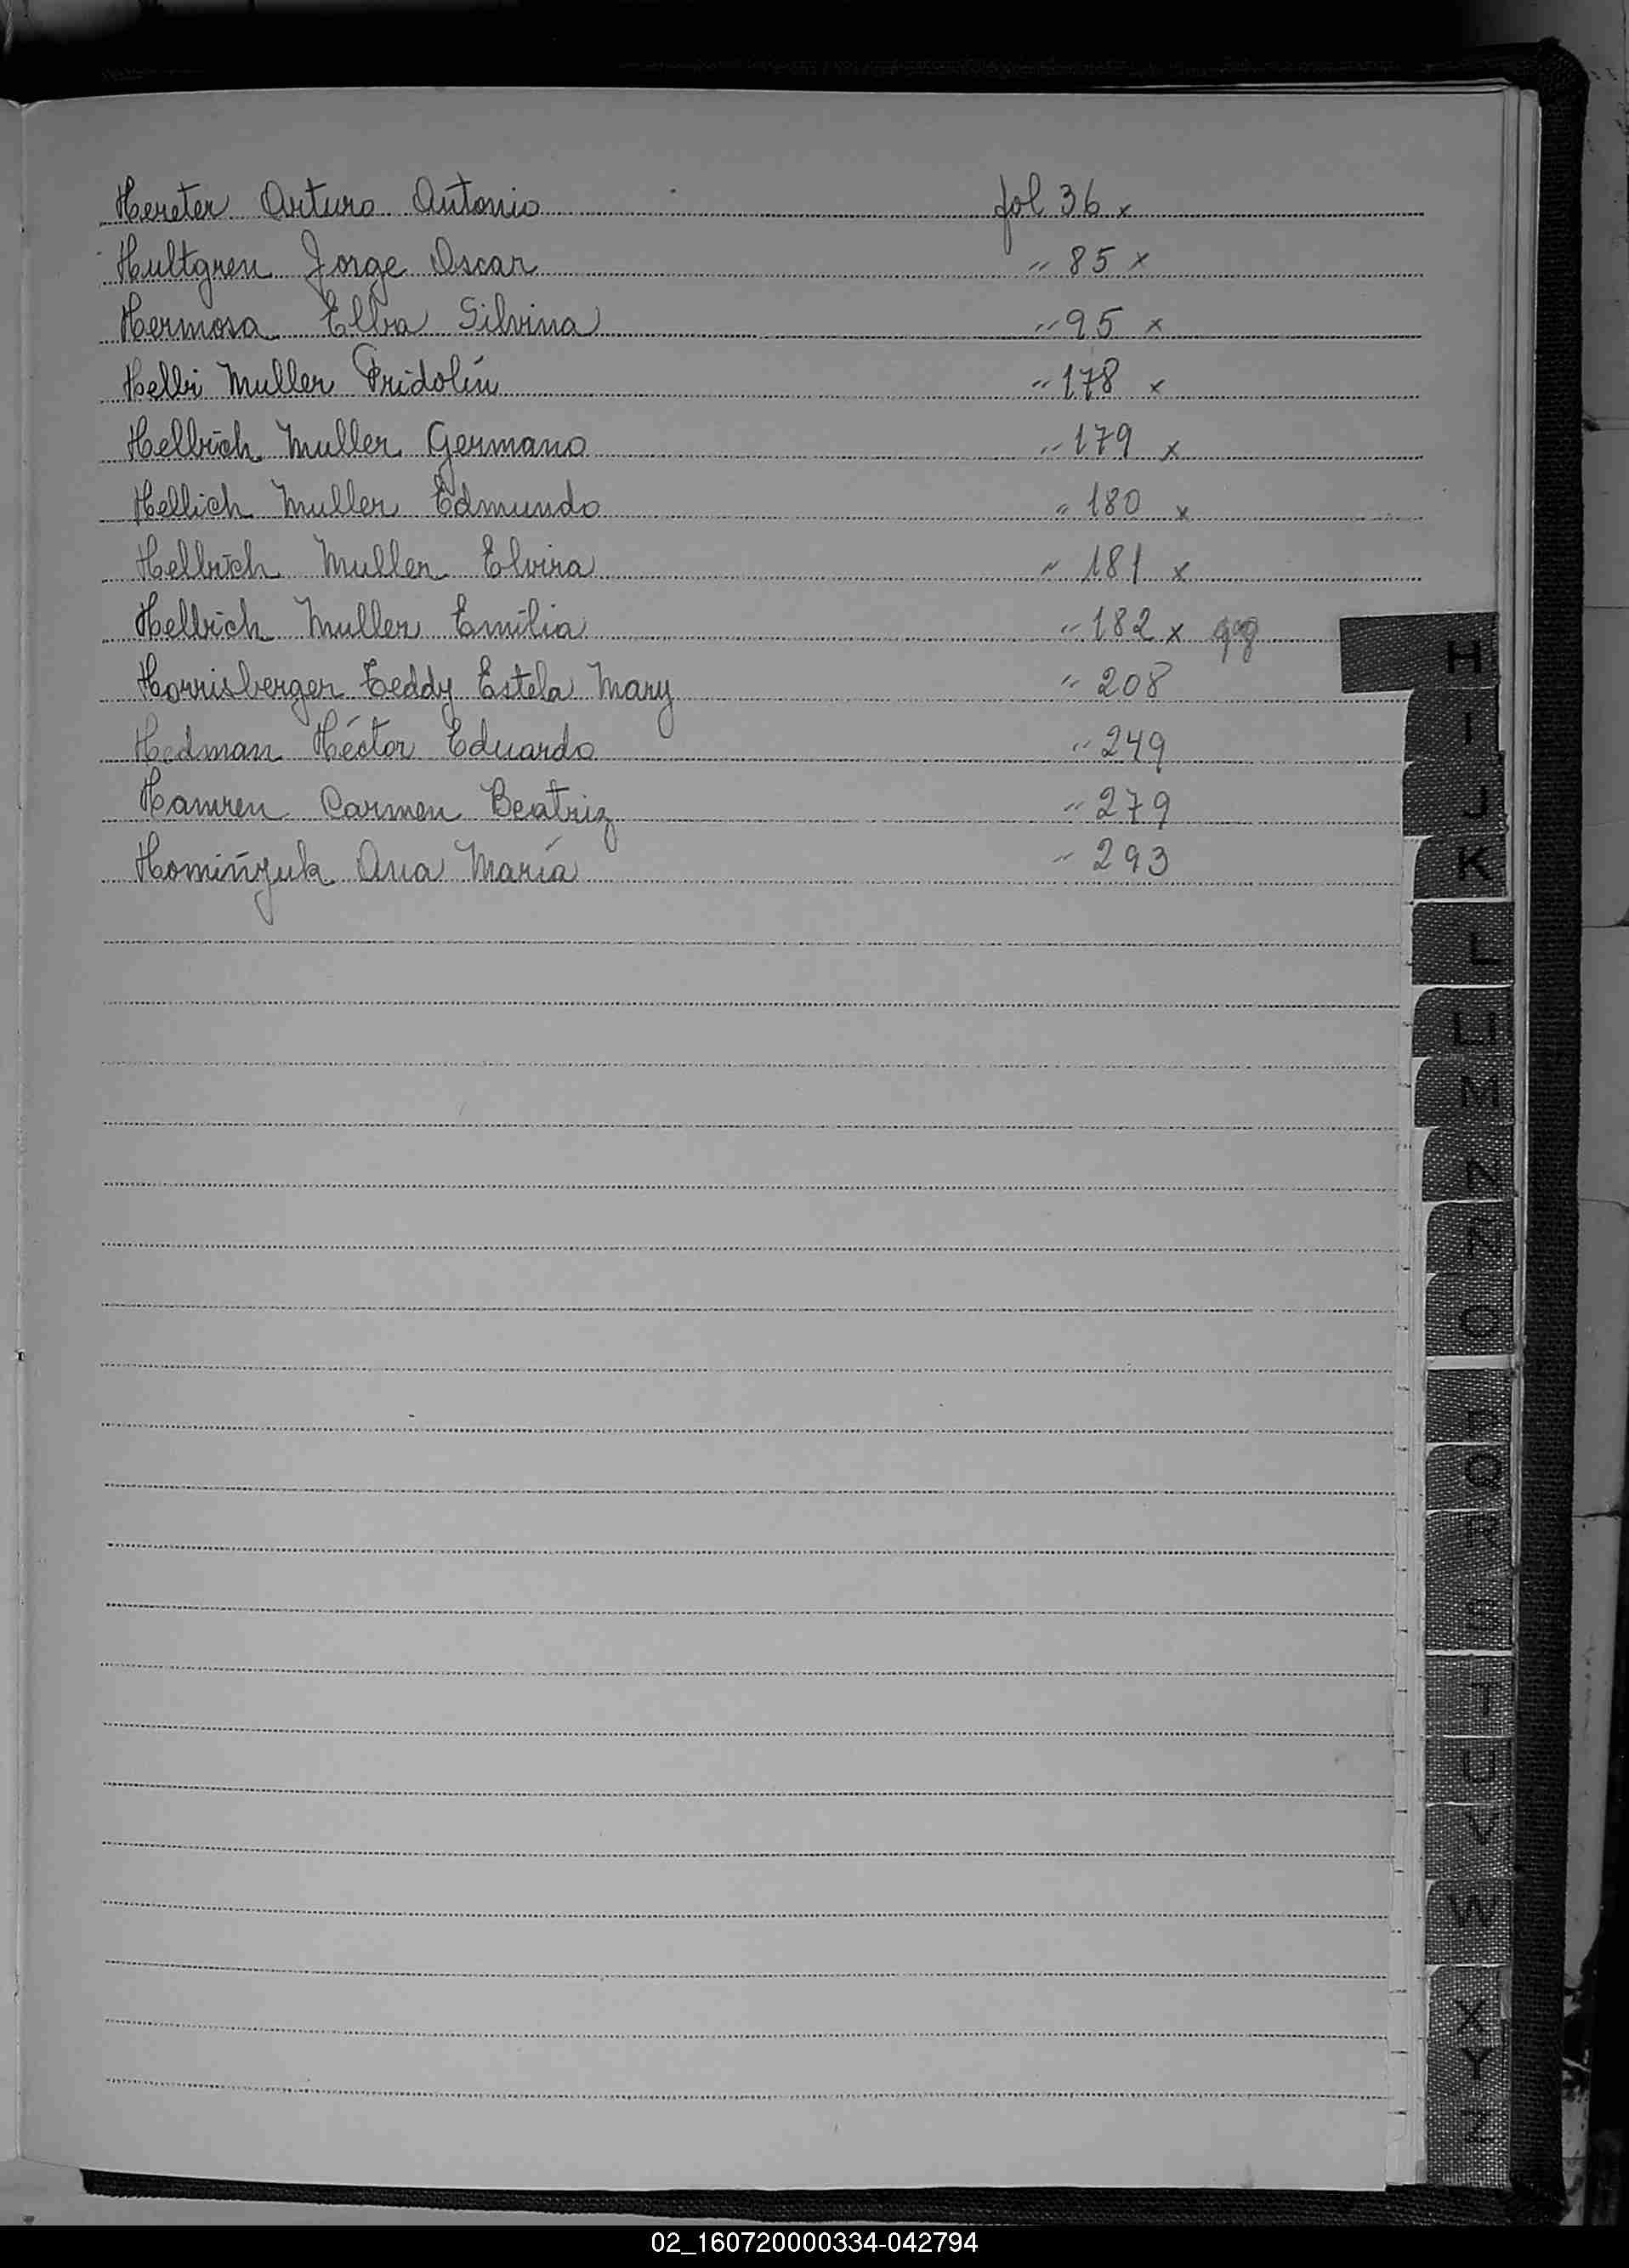 Hereter Arturo Antonio fol 36 x
Hultgren Jorge Oscar " 85 x
Hermosa Elba Silvina " 95 x
Helbi Muller Fridolín " 178 x
Helbich Muller Germano " 179 x
Hellich Muller Edmundo " 180 x
Helbich Muller Elvira " 181 x
Helbich Muller Emilia " 182 x
Horrisberger Teddy Estela Mary " 208
Hedman Héctor Eduardo " 249
Hamren Carmen Beatriz " 279
Homiñjuk Ana María " 293
H
I
J
K
L
Ll
M
N
Ñ
O
P
Q
R
S
T
U
V
W
X
Y
Z
02_160720000334-042794